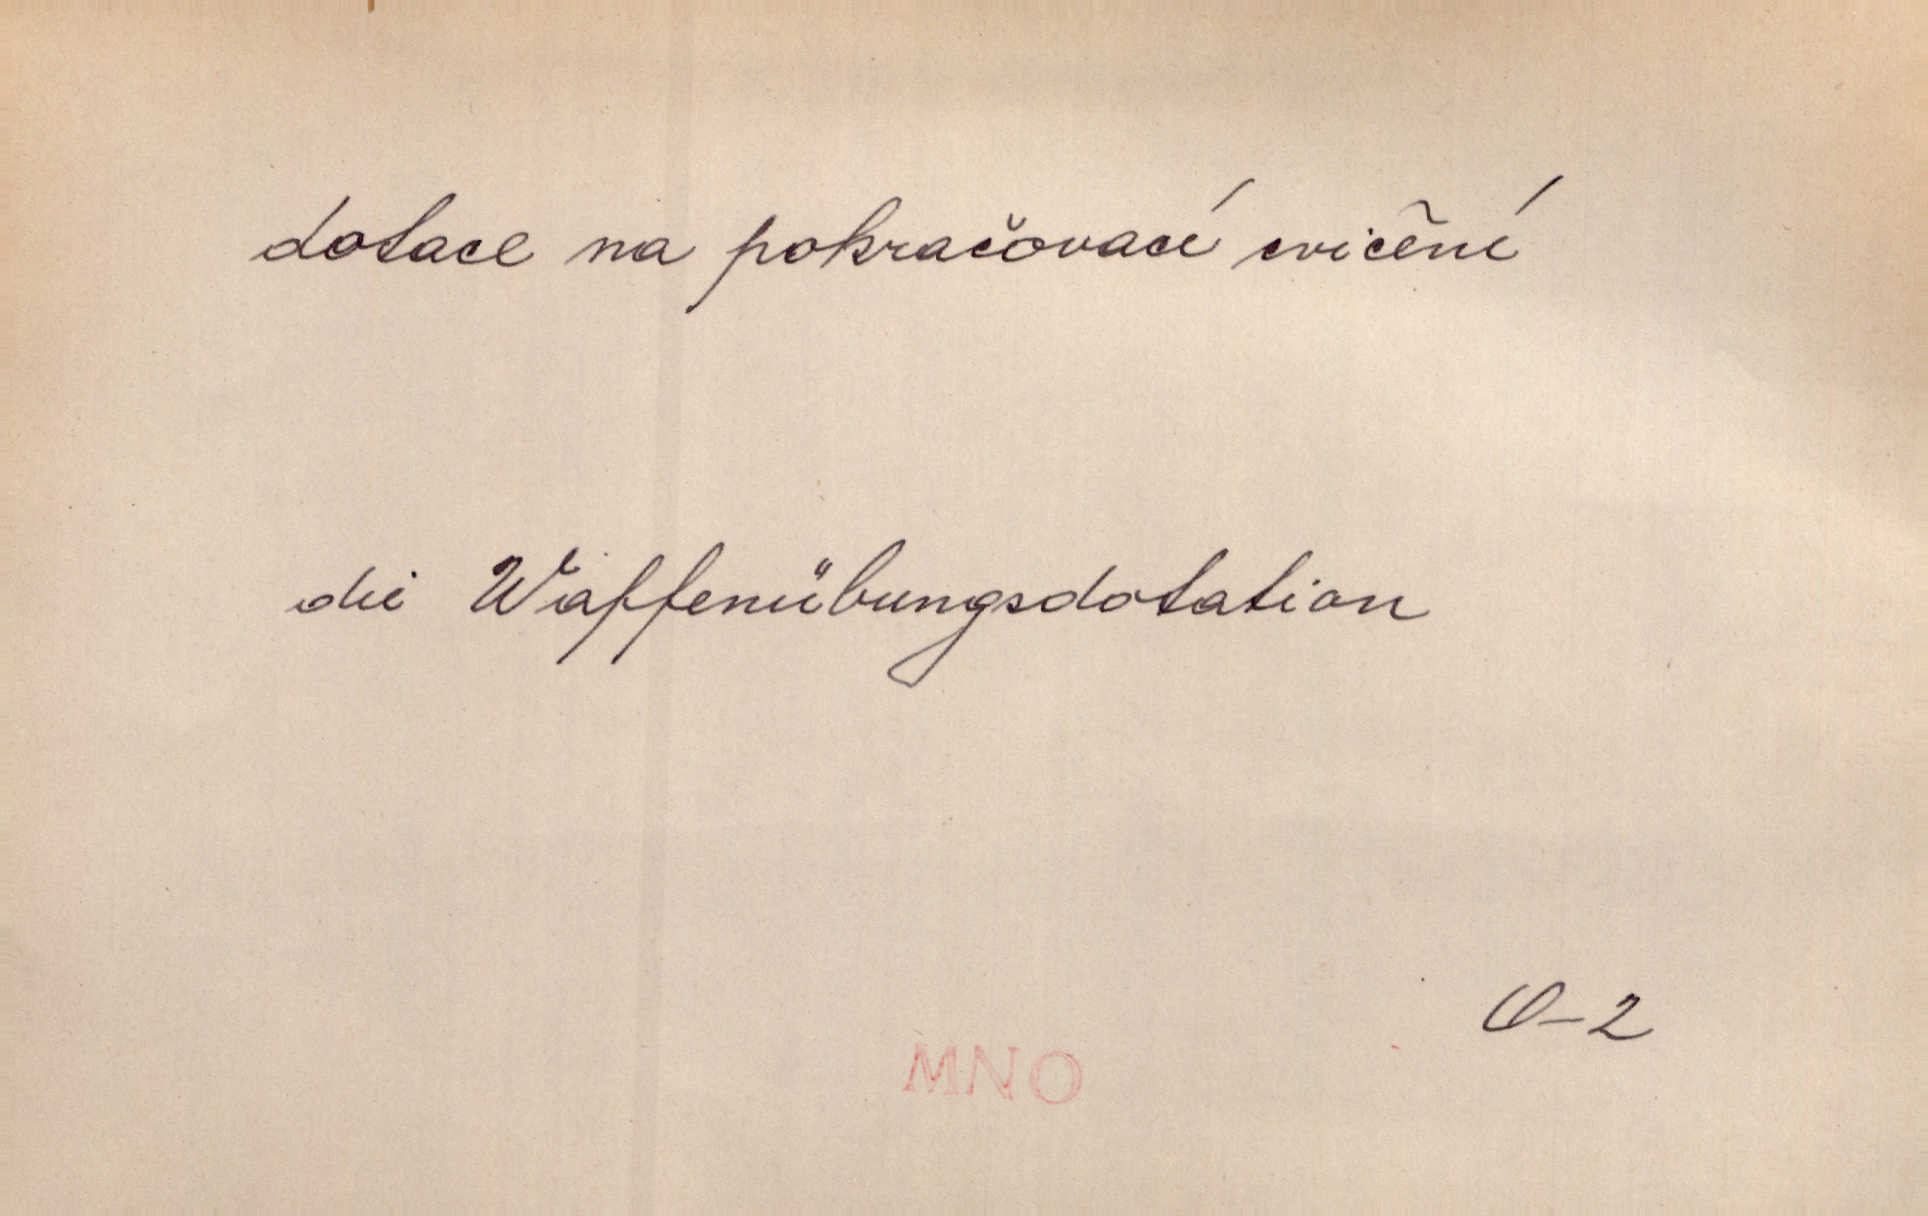 dotace na pokračovací cvičení
die Waffenübungsdotation
O-2
MNO